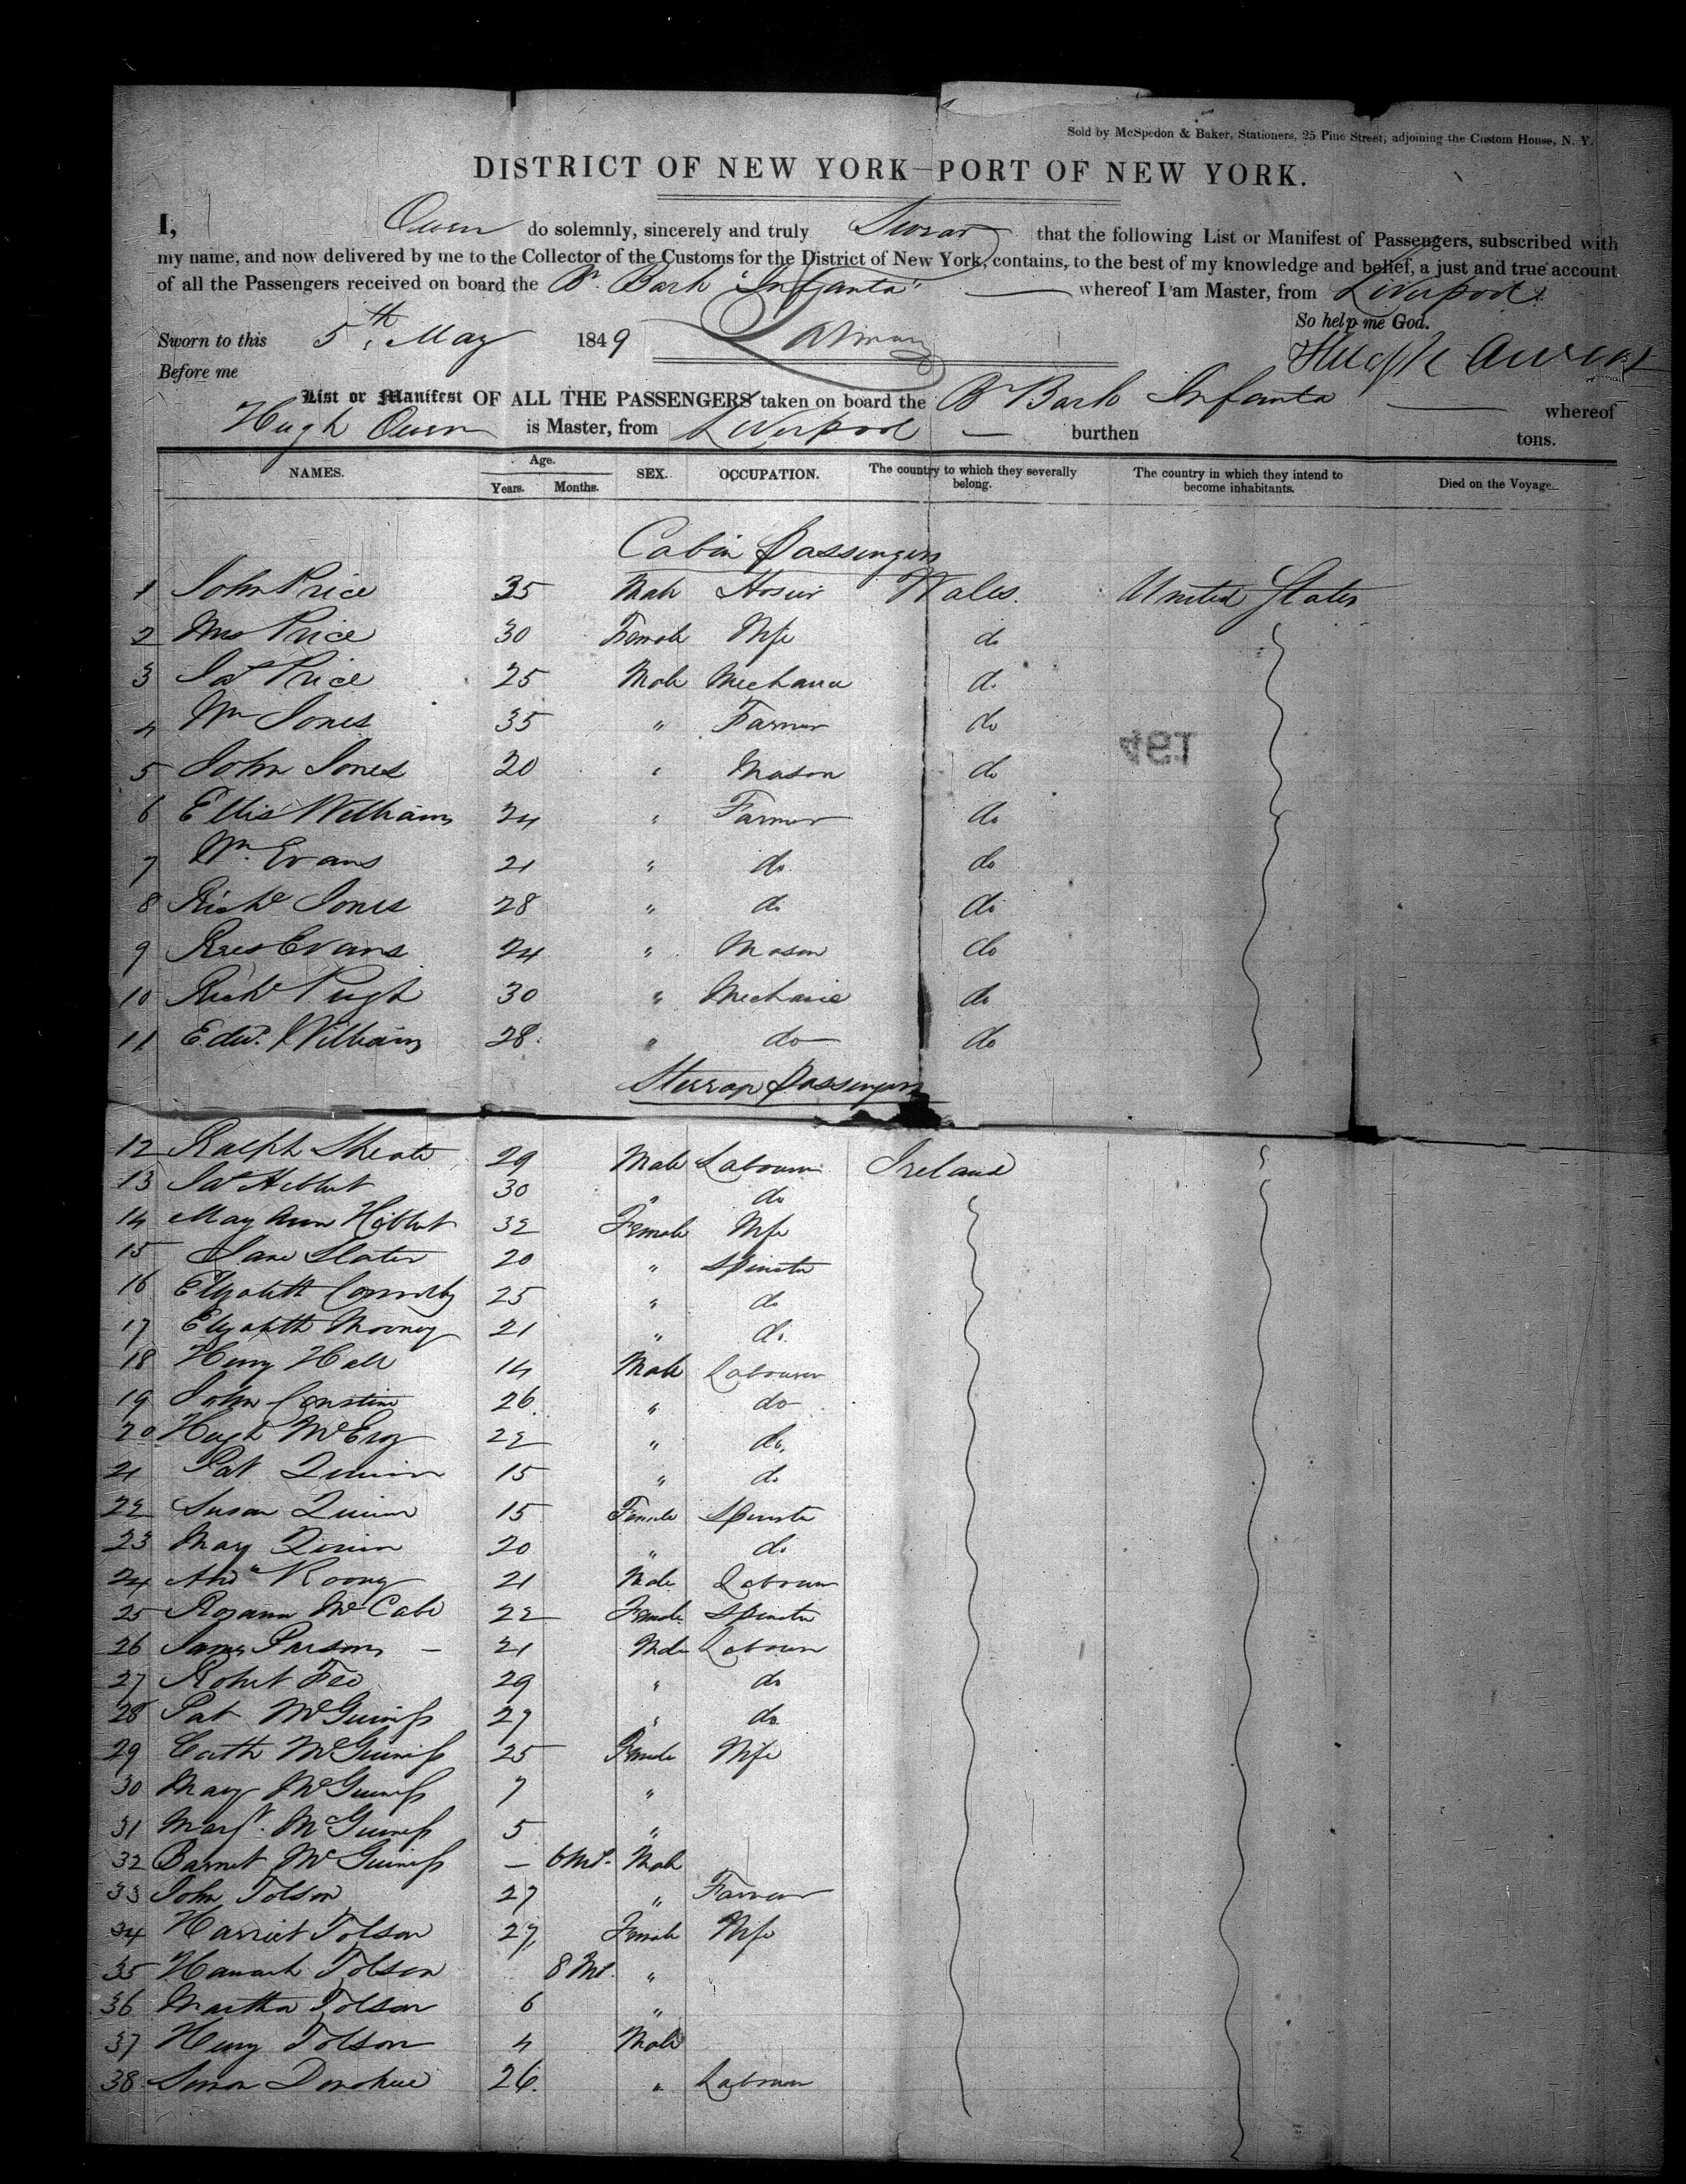 Sold by McSpedon & Baker, Stationers, 25 Pine Street, adjoining the Custom House, N. Y.
DISTRICT OF NEW YORK—PORT OF NEW YORK.
I, Owen do solemnly, sincerely and truly Swear that the following List or Manifest of Passengers, subscribed with
my name, and now delivered by me to the Collector of the Customs for the District of New York, contains, to the best of my knowledge and belief, a just and true account
of all the Passengers received on board the Br. Bark "Infanta" whereof I am Master, from Liverpool
So help me God.
Sworn to this 5th May 1849 Hugh Owen
Before me
List or Manifest OF ALL THE PASSENGERS taken on board the Br Bark Infanta whereof
Hugh Owen is Master, from Liverpool — burthen tons.
NAMES. Age. Years. Months. SEX. OCCUPATION. The country to which they severally belong. The country in which they intend to become inhabitants. Died on the Voyage.
Cabin Passengers
1 John Price 35 Male Hosier Wales. United States
2 Mrs Price 30 Female Wife do
3 Jas Price 25 Male Mechanic do
4 Wm Jones 35 " Farmer do
5 John Jones 20 " Mason do
6 Ellis Williams 24 " Farmer do
7 Wm. Evans 21 " do do
8 Richd Jones 28 " do do
9 Rees Evans 24 " Mason do
10 Richd Pugh 30 " Mechanic do
11 Edwd. Williams 28 " do do
Steerage Passengers
12 Ralph 29 Male Labourer Ireland
13 Jas Hibbert 30 " do
14 Mary Ann Hibbert 32 Female Wife
15 Jane Slater 20 " Spinster
16 Elizabeth 25 " do
17 Elizabeth Mooney 21 " do
18 Henry Hall 14 Male Labourer
19 John 26 " do
20 Hugh McEroy 22 " do
21 Pat Quinn 15 " do
22 Susan Quinn 15 Female Spinster
23 Mary Quinn 20 " do
24 Andw Roony 21 Male Labourer
25 Rosanna McCabe 22 Female Spinster
26 James Parsons — 21 Male Labourer
27 Robert Fee 29 " do
28 Pat McGuiness 27 " do
29 Cath McGuiness 25 Female Wife
30 Mary McGuiness 7 "
31 Margt. McGuiness 5 "
32 Barnet McGuiness — 6 Mt. Male
33 John Tolson 27 " Farmer
34 Harriet Tolson 27 Female Wife
35 Hannah Tolson 8 Mt. "
36 Martha Tolson 6 "
37 Henry Tolson 4 Male
38 Donohue 26 " Labourer